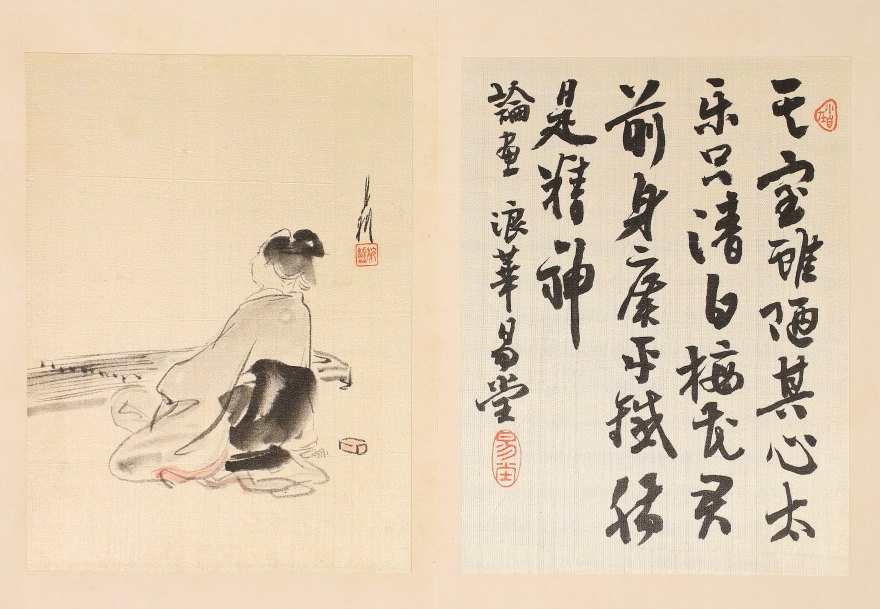 其室雖陋其心太
乐只清白梅花君
前身平鐵腸
是精神
論畫 浪華易堂
易堂